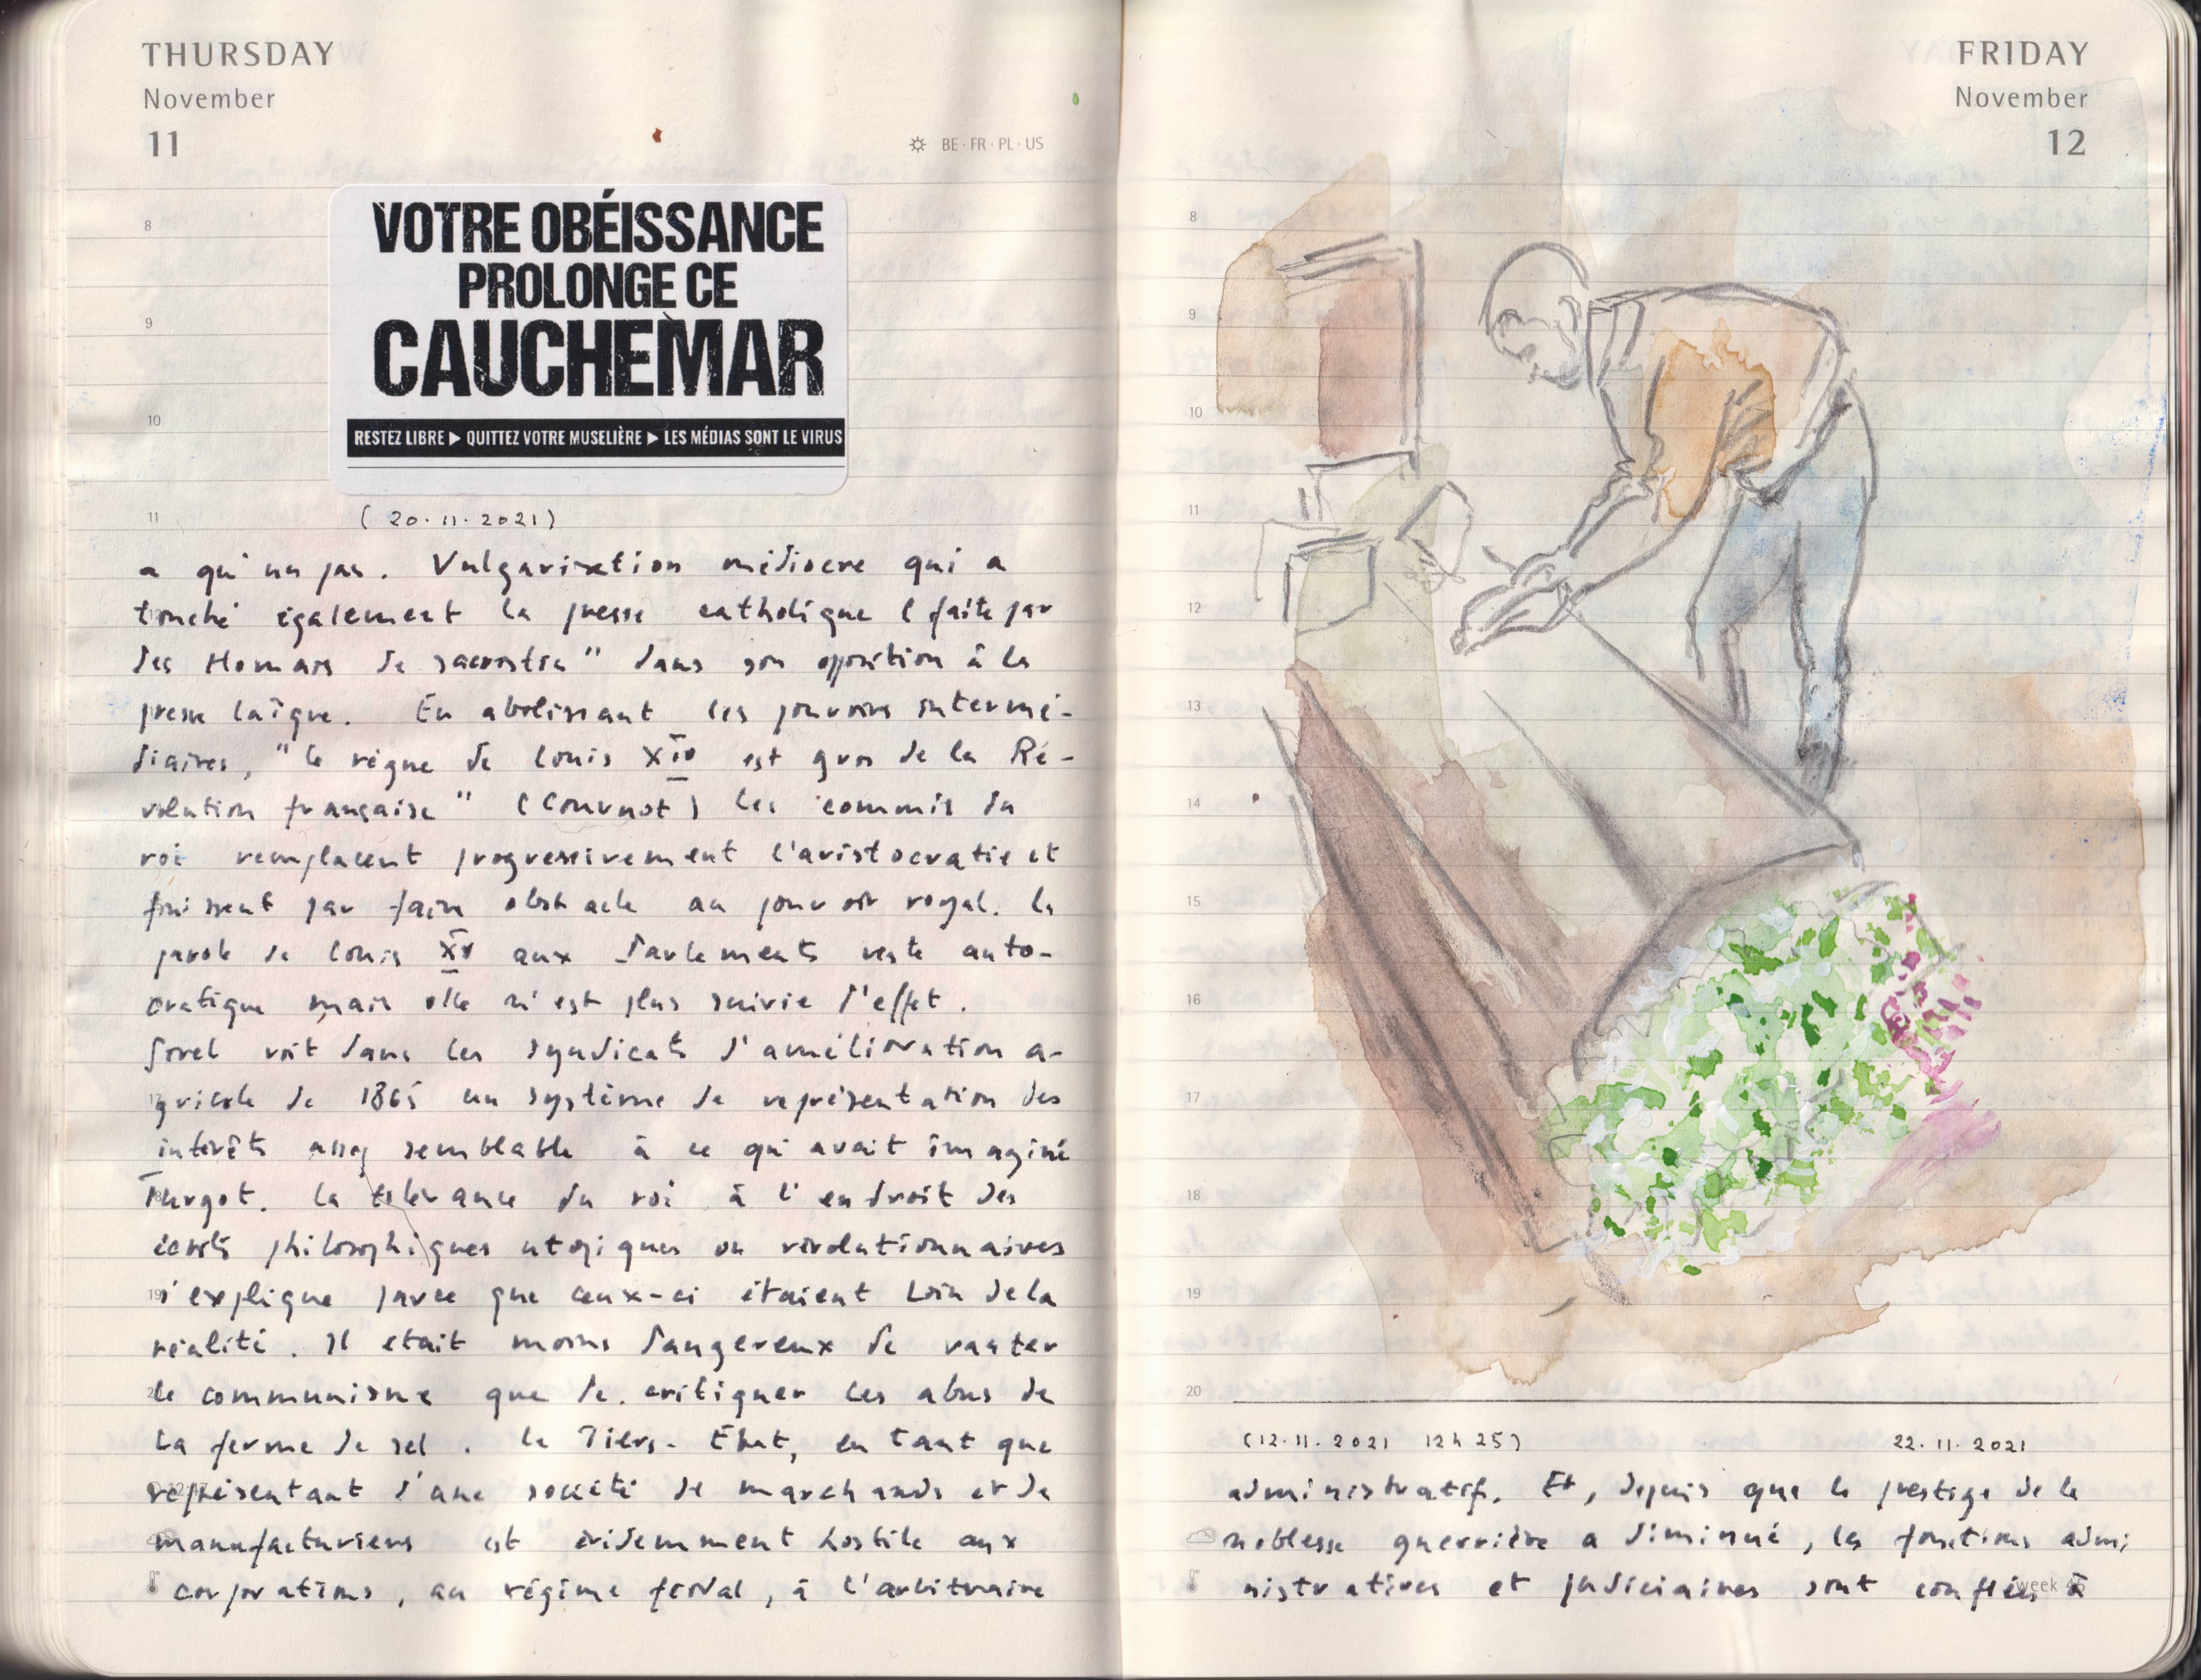 THURSDAY
November
11
BE · FR · PL · US
VOTRE OBÉISSANCE
PROLONGE CE
CAUCHEMAR
RESTEZ LIBRE ▶ QUITTEZ VOTRE MUSELIÈRE ▶ LES MÉDIAS SONT LE VIRUS
8
9
10
11
(20.11.2021)
a qu'un pas. Vulgarisation médiocre qui a
touché également la presse catholique (faite par
des Homais de sacristie" dans son opposition à la
presse laïque. En abolissant les pouvoirs intermé-
diaires, "le règne de Louis XIV est gros de la Ré-
volution française" (Cournot) Les commis du
roi remplacent progressivement l'aristocratie et
finissent par faire obstacle au pouvoir royal. La
parole de Louis XV aux Parlements reste auto-
cratique mais elle n'est plus suivie d'effet.
Sorel voit dans les syndicats d'amélioration a-
gricole de 1865 un système de représentation des
intérêts assez semblable à ce qu'avait imaginé
Turgot. La tolérance du roi à l'endroit des
écrits philosophiques utopiques ou révolutionnaires
s'explique parce que ceux-ci étaient loin de la
réalité. Il etait moins dangereux de vanter
le communisme que de critiquer les abus de
la ferme de sel. Le Tiers-État, en tant que
représentant d'une société de marchands et de
manufacturiers est évidemment hostile aux
corporations, au régime féodal, à l'arbitraire
FRIDAY
November
12
8
9
10
11
12
13
14
15
16
17
18
19
20
(12.11.2021 12h25) 22.11.2021
administratif. Et, depuis que le prestige de la
noblesse guerrière a diminué, les fonctions admi
nistratives et judiciaires sont confiées à
week 45